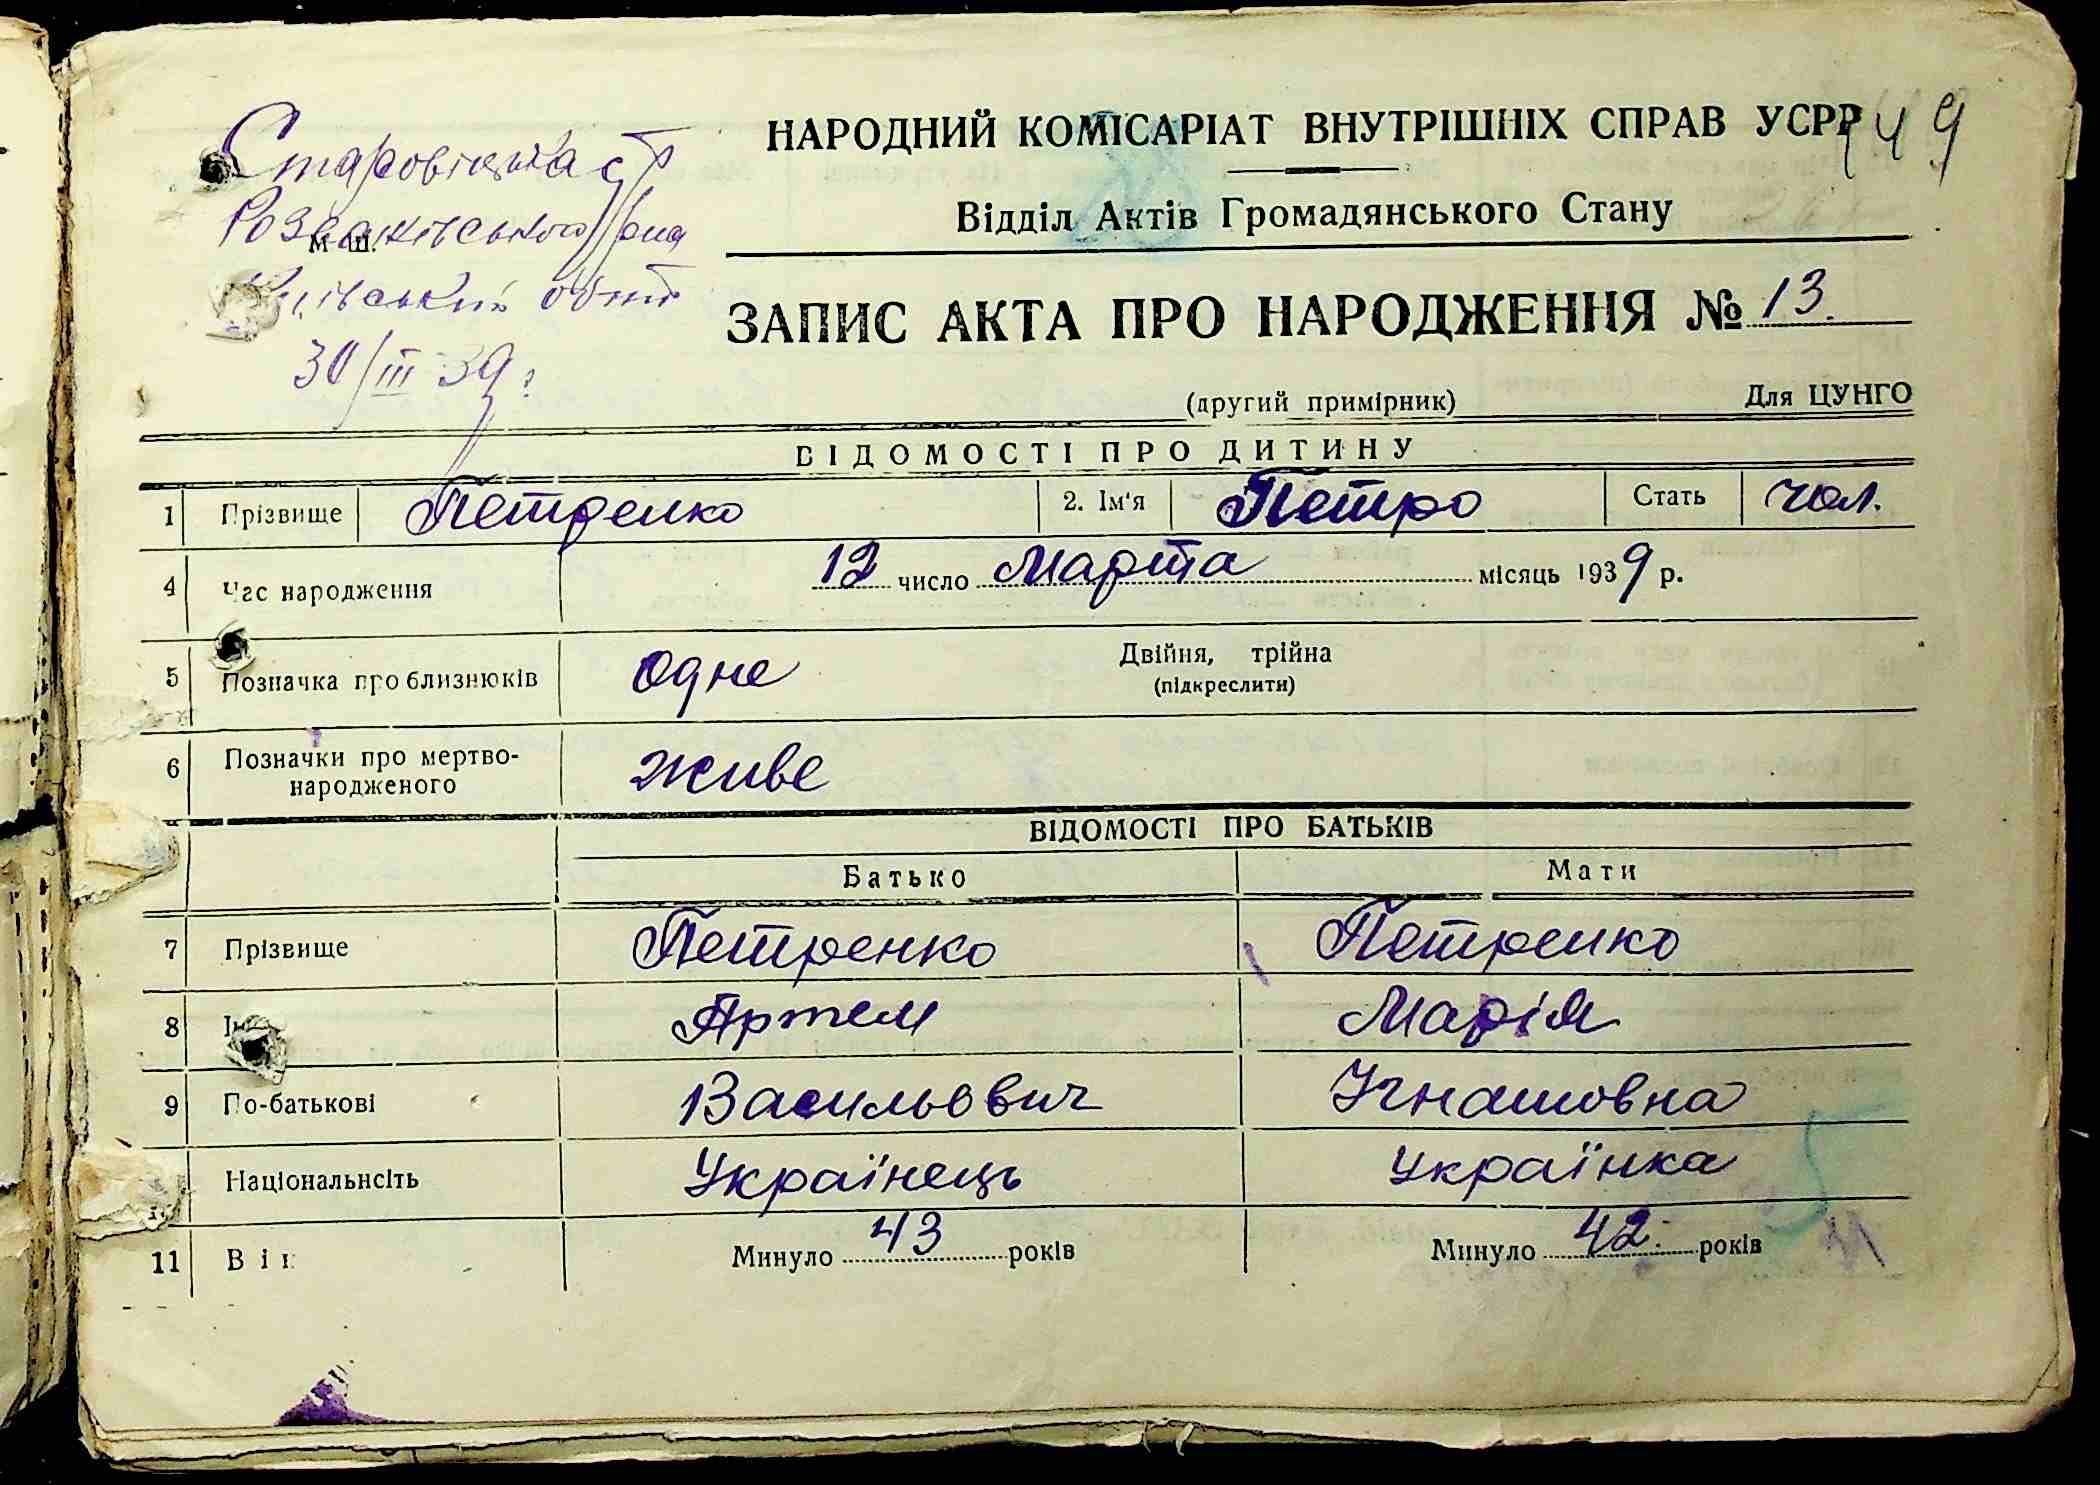 Старовіцька с/р
НАРОДНИЙ КОМІСАРІАТ ВНУТРІШНІХ СПРАВ УСРР
149
Розважівського р/ну
М. Ш.
Відділ Актів Громадянського Стану
Київський обл
ЗАПИС АКТА ПРО НАРОДЖЕННЯ № 13.
30/III 39 г.
(другий примірник) Для ЦУНГО
ВІДОМОСТІ ПРО ДИТИНУ
1 Прізвище Петренко 2. Ім'я Петро Стать чол.
4 Час народження 12 число Марта місяць 1939 р.
5 Позначка про близнюків одне Двійня, трійна
(підкреслити)
6 Позначки про мертво-
народженого живе
ВІДОМОСТІ ПРО БАТЬКІВ
Батько Мати
7 Прізвище Петренко Петренко
8 Ім Артем Марія
9 По-батькові Васильович Игнатовна
Національнсіть Українець Українка
11 Вік Минуло 43 років Минуло 42. років